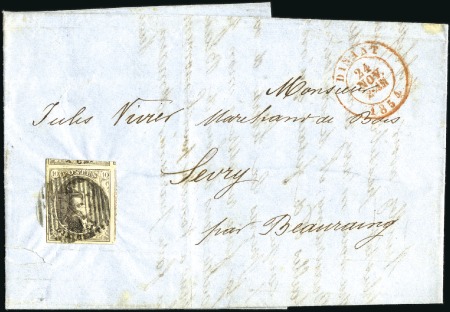 DINANT
24
NOV.
1854
Monsieur
Jules Vivier Marchand de Bois
Sevry
par Beauraing
10 10